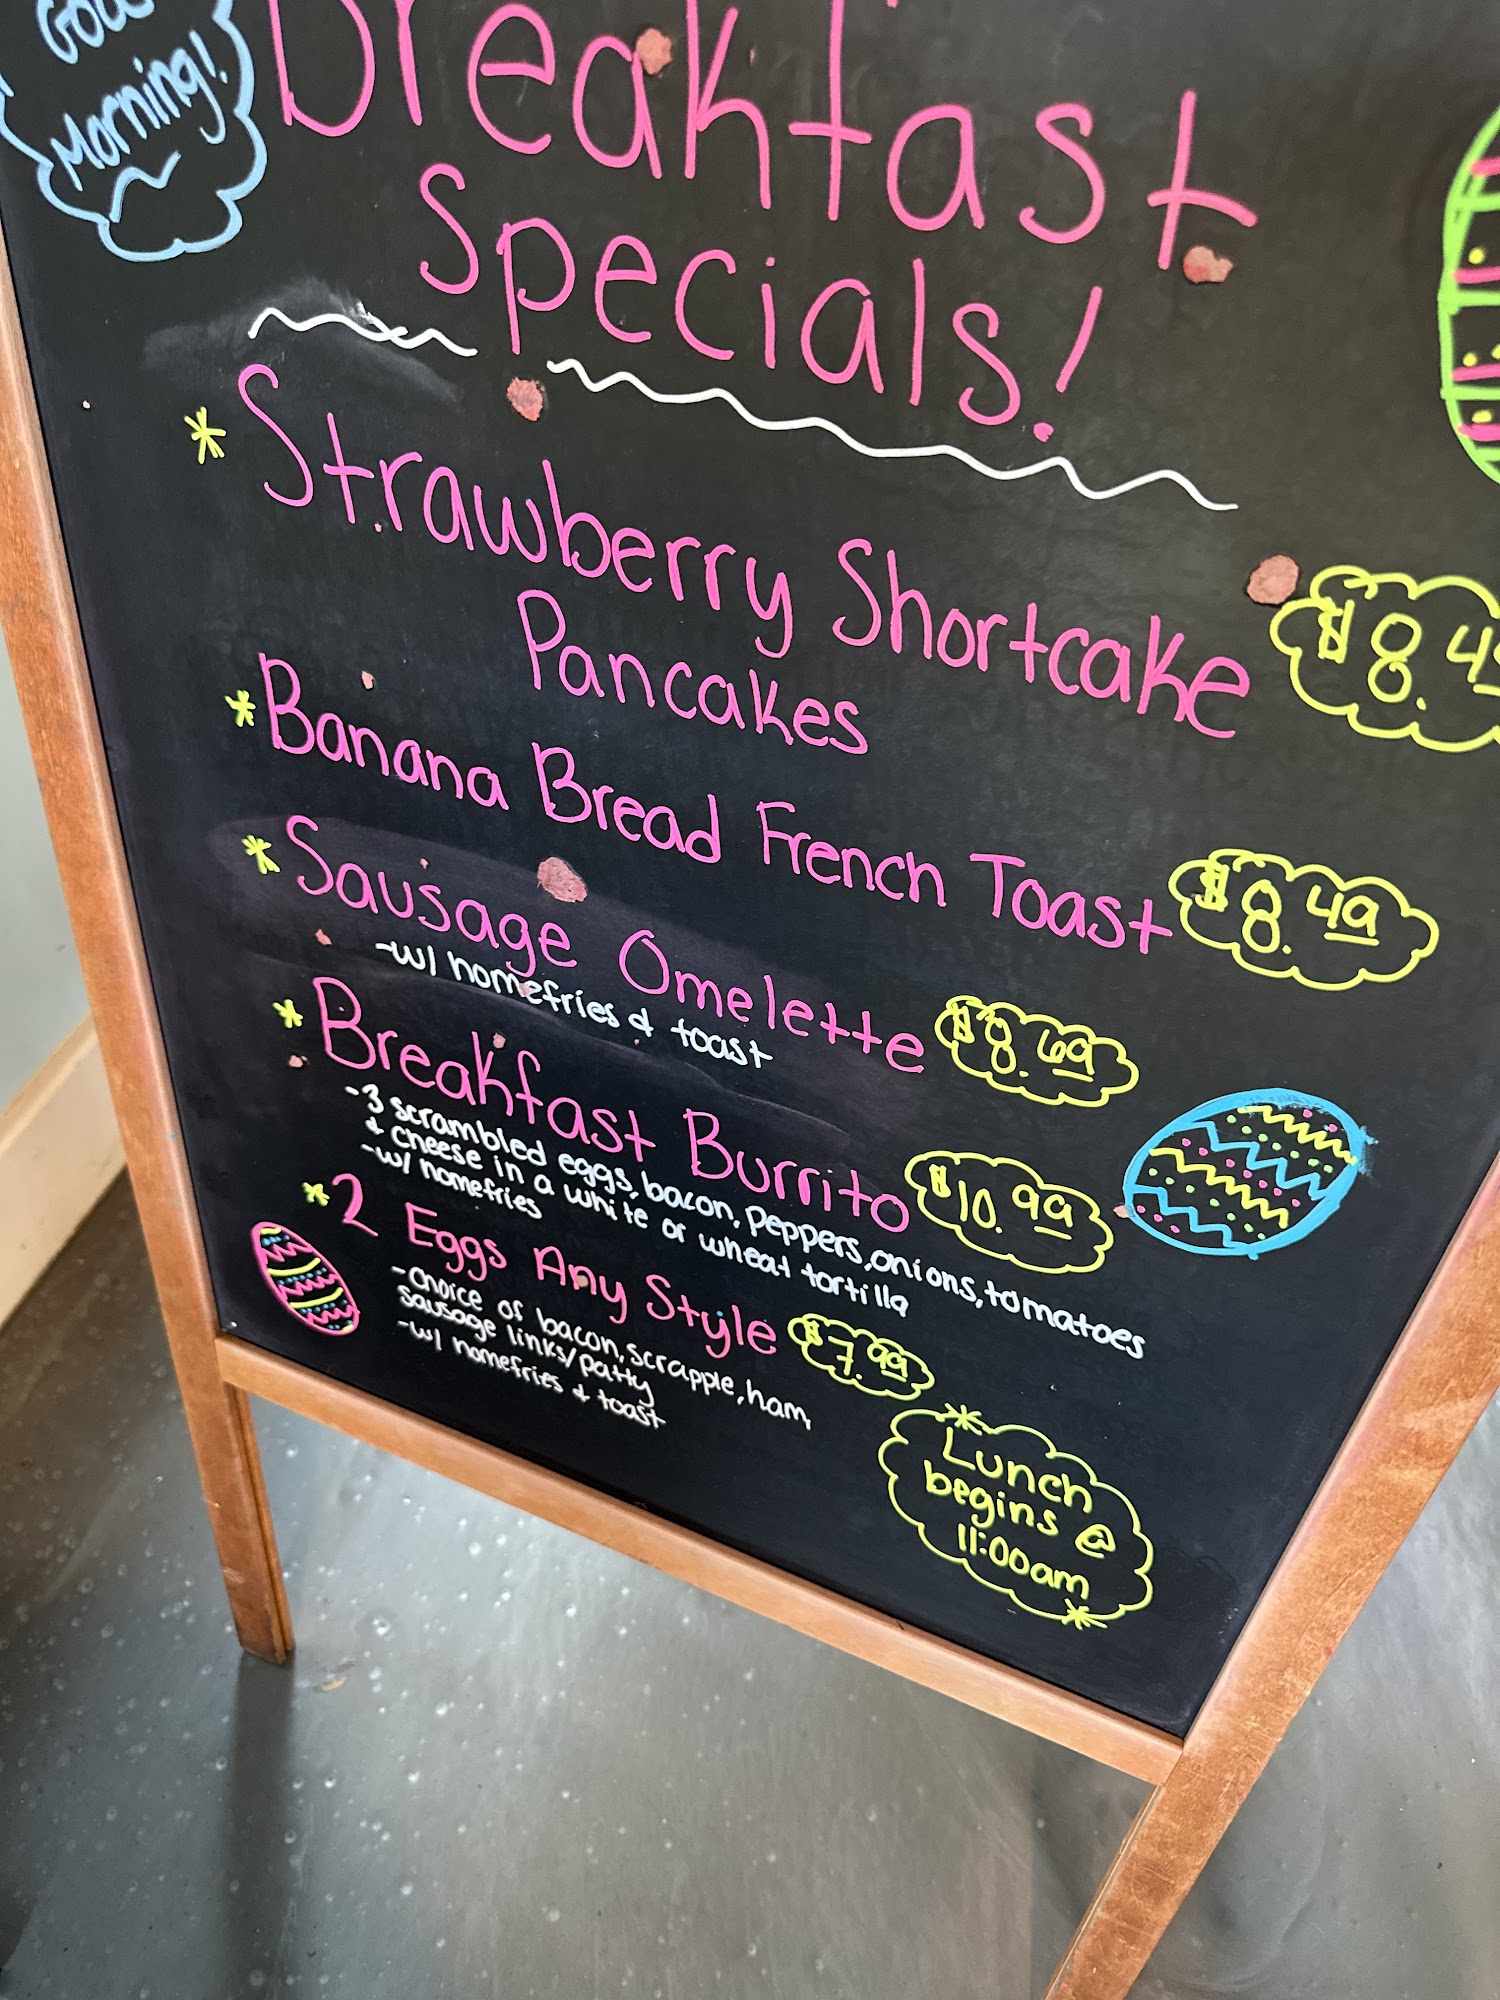 Good
Morning!
Breakfast
Specials!
* Strawberry Shortcake
Pancakes
* Banana Bread French Toast $8.49
* Sausage Omelette $8.69
-w/ homefries & toast
* Breakfast Burrito $10.99
-3 scrambled eggs, bacon, peppers, onions, tomatoes
& cheese in a white or wheat tortilla
-w/ homefries
* 2 Eggs Any Style $7.99
-choice of bacon, scrapple, ham,
sausage links/patty
-w/ homefries & toast
* Lunch
begins @
11:00am *